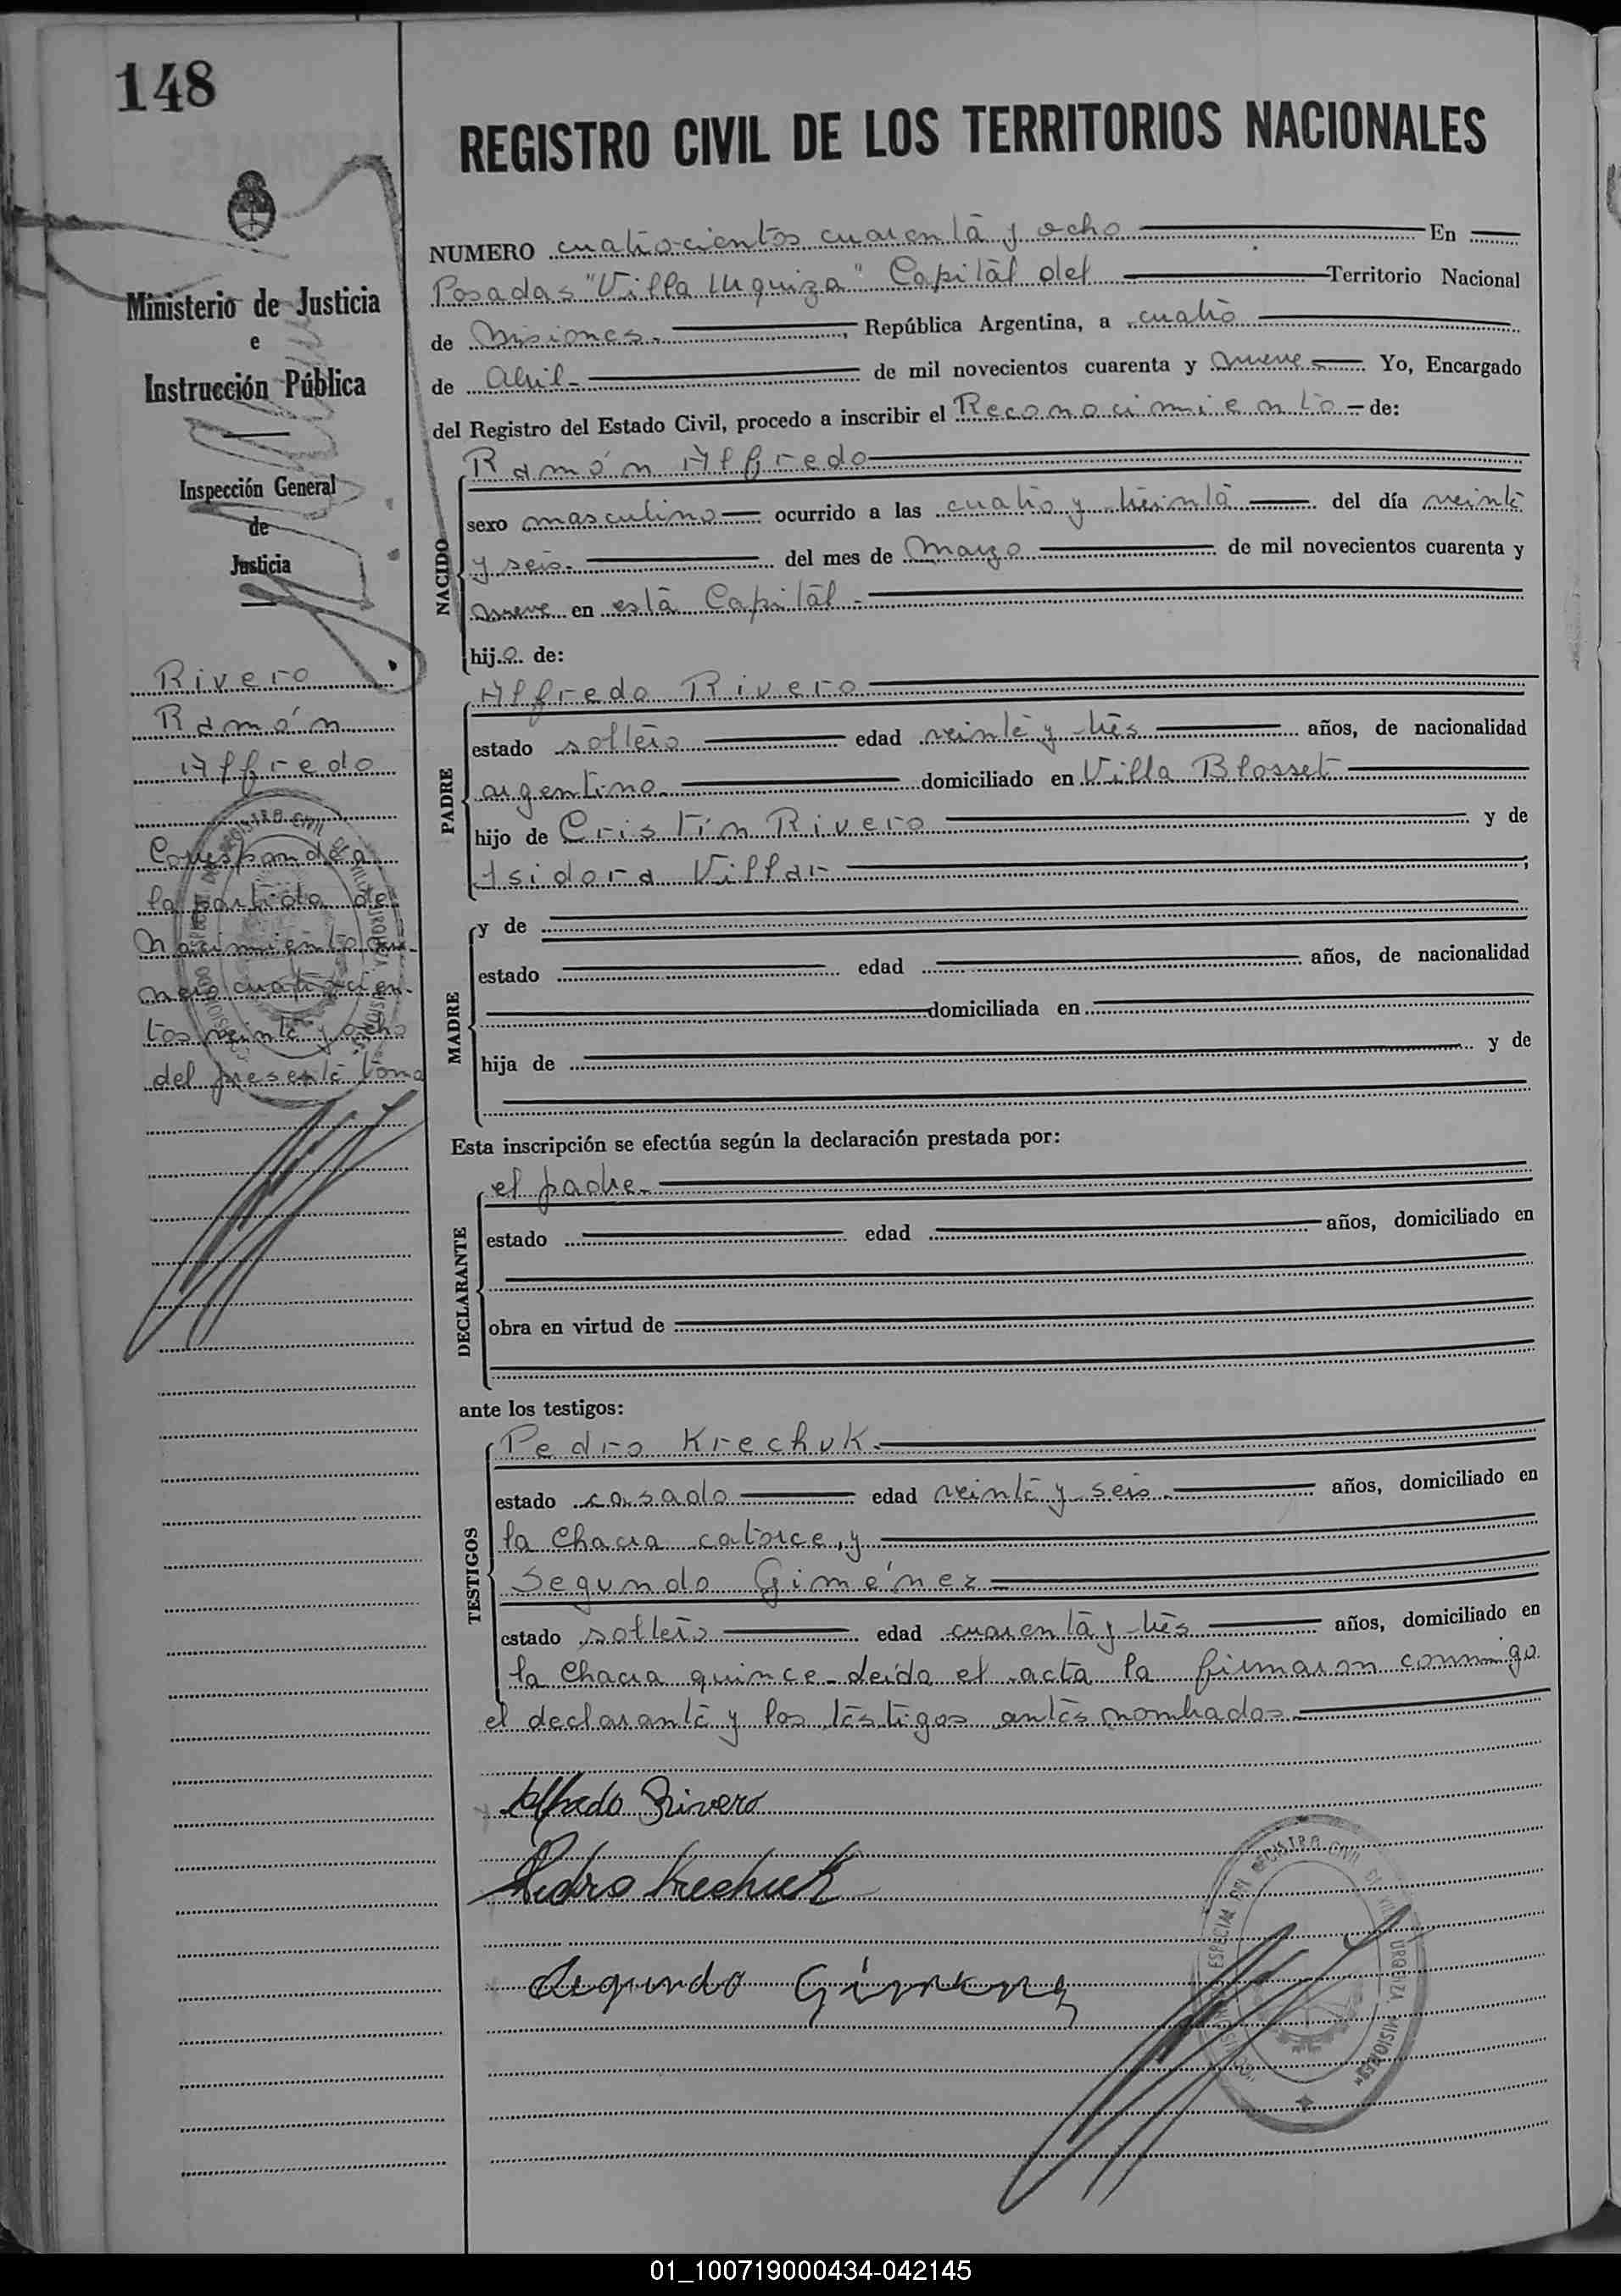 148
REGISTRO CIVIL DE LOS TERRITORIOS NACIONALES
Ministerio de Justicia
e
Instrucción Pública
Inspección General
de
Justicia
Rivero
Ramón
Alfredo
Corresponde a
la partida de
Nacimiento nú-
mero cuatrocien-
tos veinte y ocho
del presente tomo
NUMERO cuatrocientos cuarenta y ocho En
Posadas "Villa Urquiza" Capital del Territorio Nacional
de Misiones. , República Argentina, a cuatro
de Abril- de mil novecientos cuarenta y nueve Yo, Encargado
del Registro del Estado Civil, procedo a inscribir el Reconocimiento - de:
NACIDO
Ramón Alfredo
sexo masculino ocurrido a las cuatro y treinta del día veinte
y seis. del mes de Marzo de mil novecientos cuarenta y
nueve en esta Capital.
hijo de:
PADRE
Alfredo Rivero
estado soltero edad veinte y tres años, de nacionalidad
argentino. domiciliado en Villa Blosset
hijo de Cristín Rivero y de
Isidora Villar ;
MADRE
y de
estado edad años, de nacionalidad
domiciliada en
hija de y de
Esta inscripción se efectúa según la declaración prestada por:
DECLARANTE
el padre.
estado edad años, domiciliado en
obra en virtud de
ante los testigos:
TESTIGOS
Pedro Krechuk.
estado casado edad veinte y seis. años, domiciliado en
la Chacra catorce, y
Segundo Giménez
estado soltero edad cuarenta y tres años, domiciliado en
la Chacra quince. Leída el acta la firmaron conmigo
el declarante y los testigos antes nombrados.
Alfredo Rivero
Pedro Krechuk
Segundo Gimenez
REGISTRO CIVIL DE VILLA URQUIZA MISIONES
01_100719000434-042145